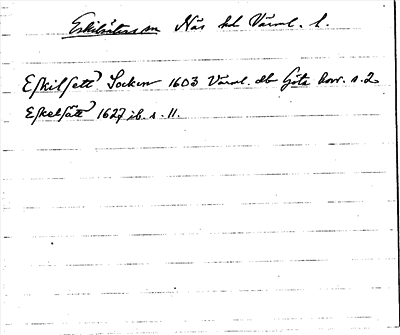 Eskilsäters sn Näs hd Värml. l.
Eskilsett Socken 1603 Värml. db Göta kvr. s. 2
Eskelsätt 1627 ib. s. 11.